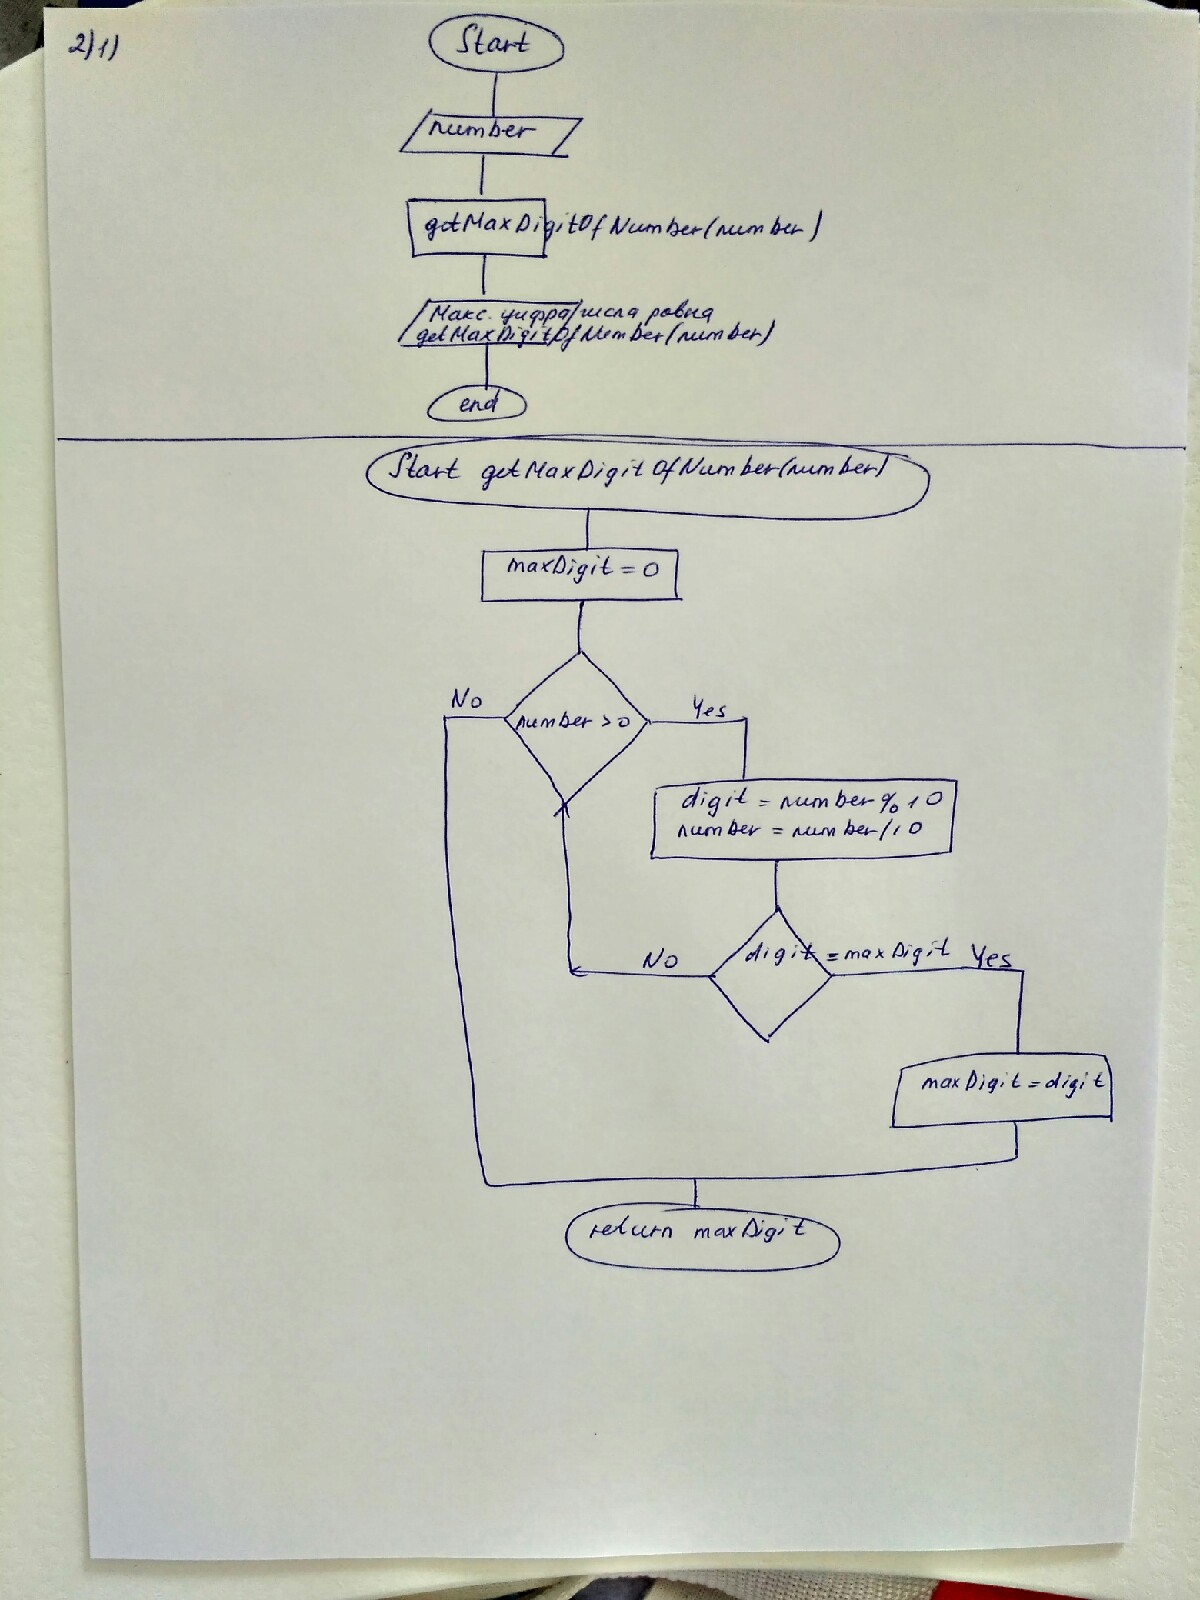 2)1)
Start
number
getMaxDigitOfNumber(number)
Макс. цифра числа равна
getMaxDigitOfNumber(number)
end
Start getMaxDigitOfNumber(number)
maxDigit = 0
No
number > 0
Yes
digit = number % 10
number = number / 10
No
digit = maxDigit
Yes
maxDigit = digit
return maxDigit